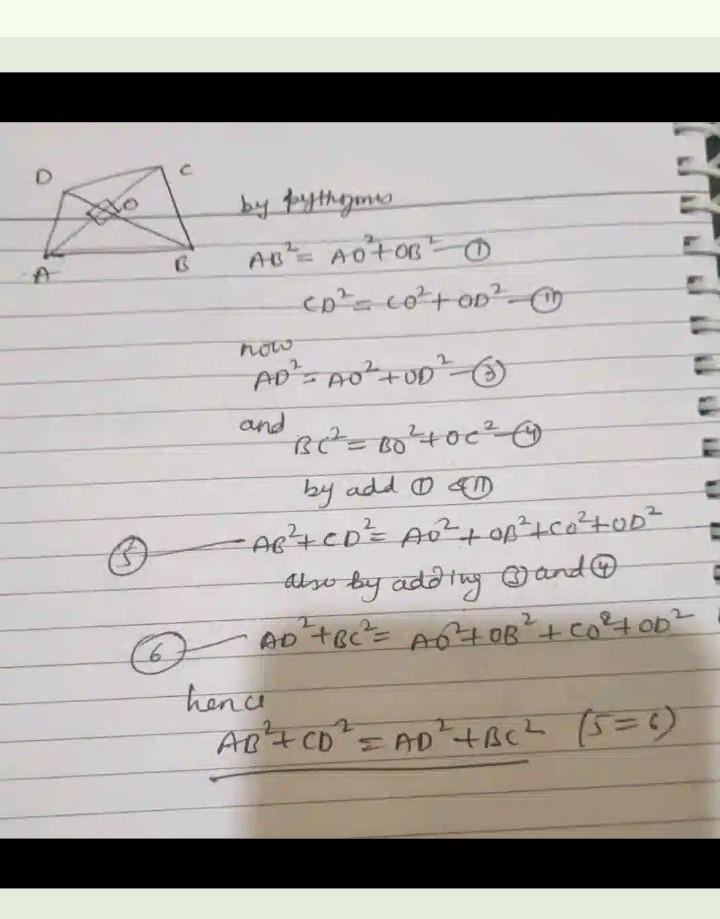 D C
O
A B
by pythgores
AB² = AO² + OB² — ①
CD² = CO² + OD² — ⑪
now
AD² = AO² + OD² — ③
and
BC² = BO² + OC² — ④
by add ① & ⑪
⑤ — AB² + CD² = AO² + OB² + CO² + OD²
also by adding ③ and ④
⑥ — AD² + BC² = AO² + OB² + CO² + OD²
hence
AB² + CD² = AD² + BC² (5=6)